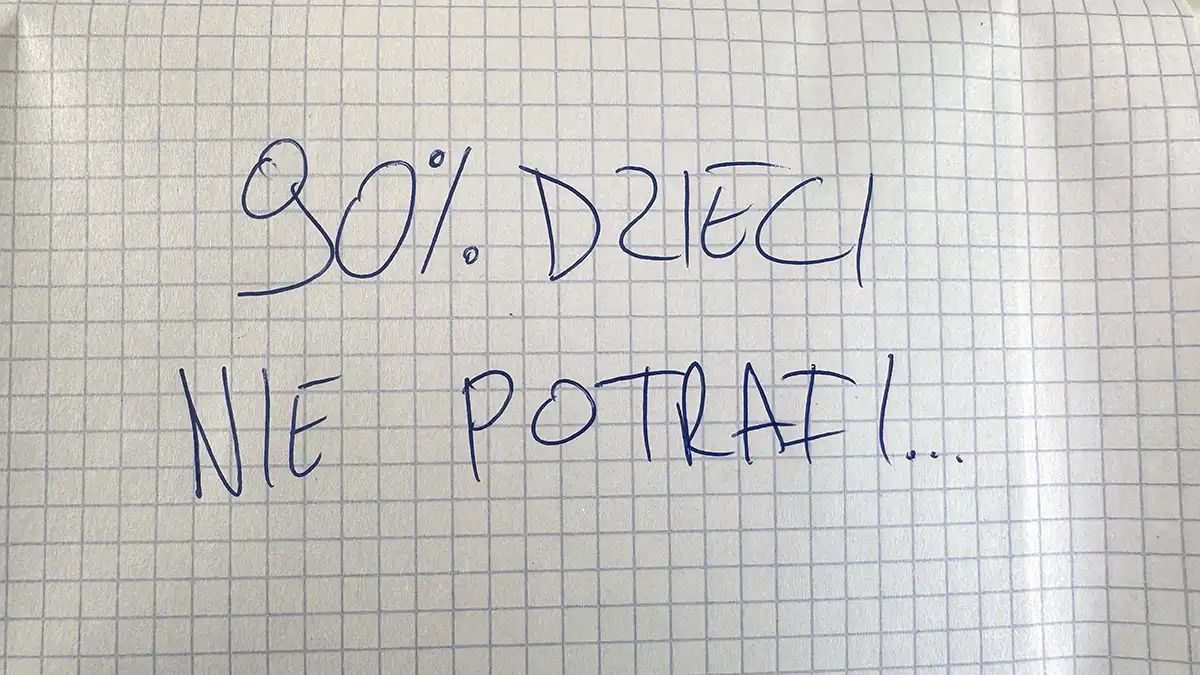 90% DZIECI
NIE POTRAFI...